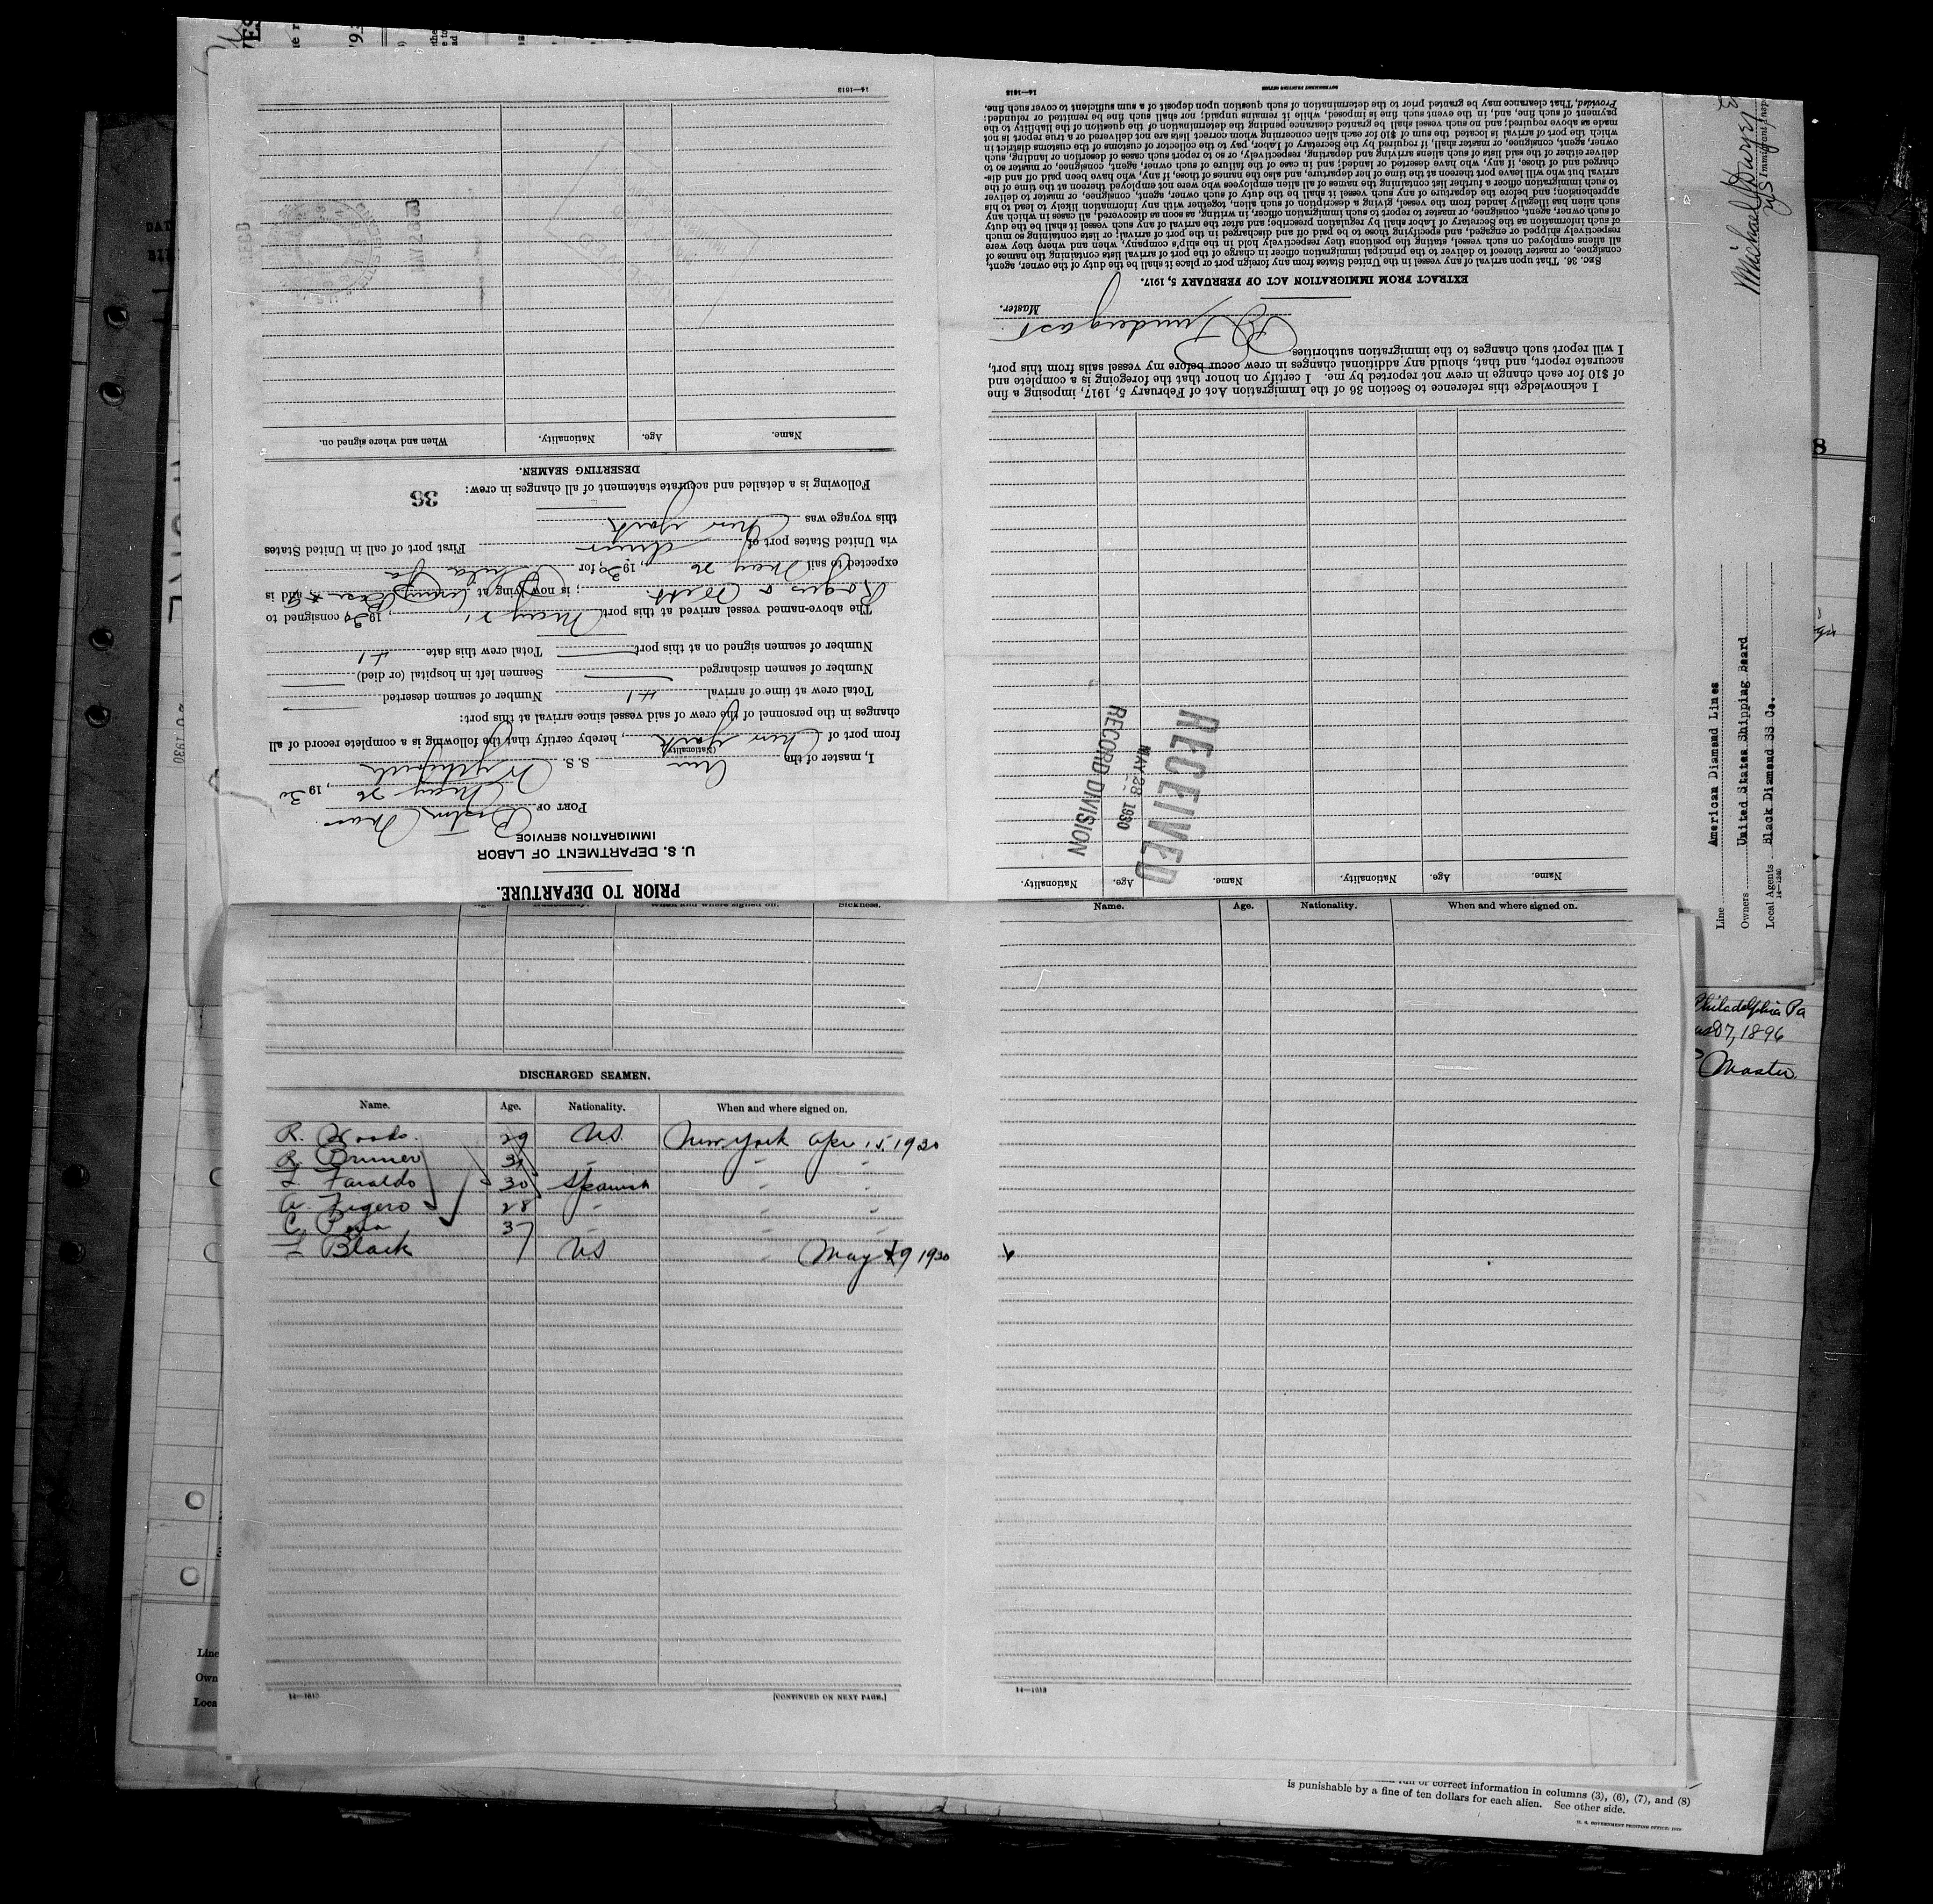 PRIOR TO DEPARTURE.
U. S. DEPARTMENT OF LABOR
IMMIGRATION SERVICE
PORT OF Boston Mass.
May 26, 1930
I, master of the Am S. S.
(Nationality)
from port of New York, hereby certify that the following is a complete record of all
changes in the personnel of the crew of said vessel since arrival at this port:
Total crew at time of arrival 41 Number of seamen deserted
Number of seamen discharged Seamen left in hospital (or died)
Number of seamen signed on at this port Total crew this date 41
The above-named vessel arrived at this port May 21, 1930 consigned to
Rogers & Webb; is now lying at Army Base, and is
expected to sail May 26, 1930, for Phila Pa
via United States port of First port of call in United States
this voyage was New York
Following is a detailed and accurate statement of all changes in crew:
36
DESERTING SEAMEN.
Name. Age. Nationality. When and where signed on.
14—1613
Name. Age. Nationality. Name. Age. Nationality.
RECEIVED
MAY 28 1930
RECORD DIVISION
I acknowledge this reference to Section 36 of the Immigration Act of February 5, 1917, imposing a fine
of $10 for each change in crew not reported by me. I certify on honor that the foregoing is a complete and
accurate report, and that, should any additional changes in crew occur before my vessel sails from this port,
I will report such changes to the immigration authorities.
Master.
EXTRACT FROM IMMIGRATION ACT OF FEBRUARY 5, 1917.
SEC. 36. That upon arrival of any vessel in the United States from any foreign port or place it shall be the duty of the owner, agent,
consignee, or master thereof to deliver to the principal immigration officer in charge of the port of arrival lists containing the names of
all aliens employed on such vessel, stating the positions they respectively hold in the ship's company, when and where they were
respectively shipped or engaged, and specifying those to be paid off and discharged in the port of arrival; or lists containing so much
of such information as the Secretary of Labor shall by regulation prescribe; and after the arrival of any such vessel it shall be the duty
of such owner, agent, consignee, or master to report to such immigration officer, in writing, as soon as discovered, all cases in which any
such alien has illegally landed from the vessel, giving a description of such alien, together with any information likely to lead to his
apprehension; and before the departure of any such vessel it shall be the duty of such owner, agent, consignee, or master to deliver
to such immigration officer a further list containing the names of all alien employees who were not employed thereon at the time of the
arrival but who will leave port thereon at the time of her departure, and also the names of those, if any, who have been paid off and dis-
charged and of those, if any, who have deserted or landed; and in case of the failure of such owner, agent, consignee, or master so to
deliver either of the said lists of such aliens arriving and departing, respectively, or so to report such cases of desertion or landing, such
owner, agent, consignee, or master shall, if required by the Secretary of Labor, pay to the collector of customs of the customs district in
which the port of arrival is located the sum of $10 for each alien concerning whom correct lists are not delivered or a true report is not
made as above required; and no such vessel shall be granted clearance pending the determination of the question of the liability to the
payment of such fine, and, in the event such fine is imposed, while it remains unpaid; nor shall such fine be remitted or refunded:
Provided, That clearance may be granted prior to the determination of such question upon deposit of a sum sufficient to cover such fine.
14—1613
Nationality. When and where signed on. Sickness.
DISCHARGED SEAMEN.
Name. Age. Nationality. When and where signed on.
R. Woods. 29 US. New York Apr 15, 1930
R. Brunner " "
L Faraldo 30 Spanish " "
A Figero 28 " " "
C. Pena 37 " " "
L Black US " May 19 1930
14—1613 [CONTINUED ON NEXT PAGE.]
Name. Age. Nationality. When and where signed on.
14—1613
Line American Diamond Lines
Owners United States Shipping Board
Local Agents Black Diamond SS Co.
14—1240
Immigrant Insp
Philadelphia Pa
7, 1896
Master.
Line
Own
Loca
or correct information in columns (3), (6), (7), and (8)
is punishable by a fine of ten dollars for each alien. See other side.
U. S. GOVERNMENT PRINTING OFFICE